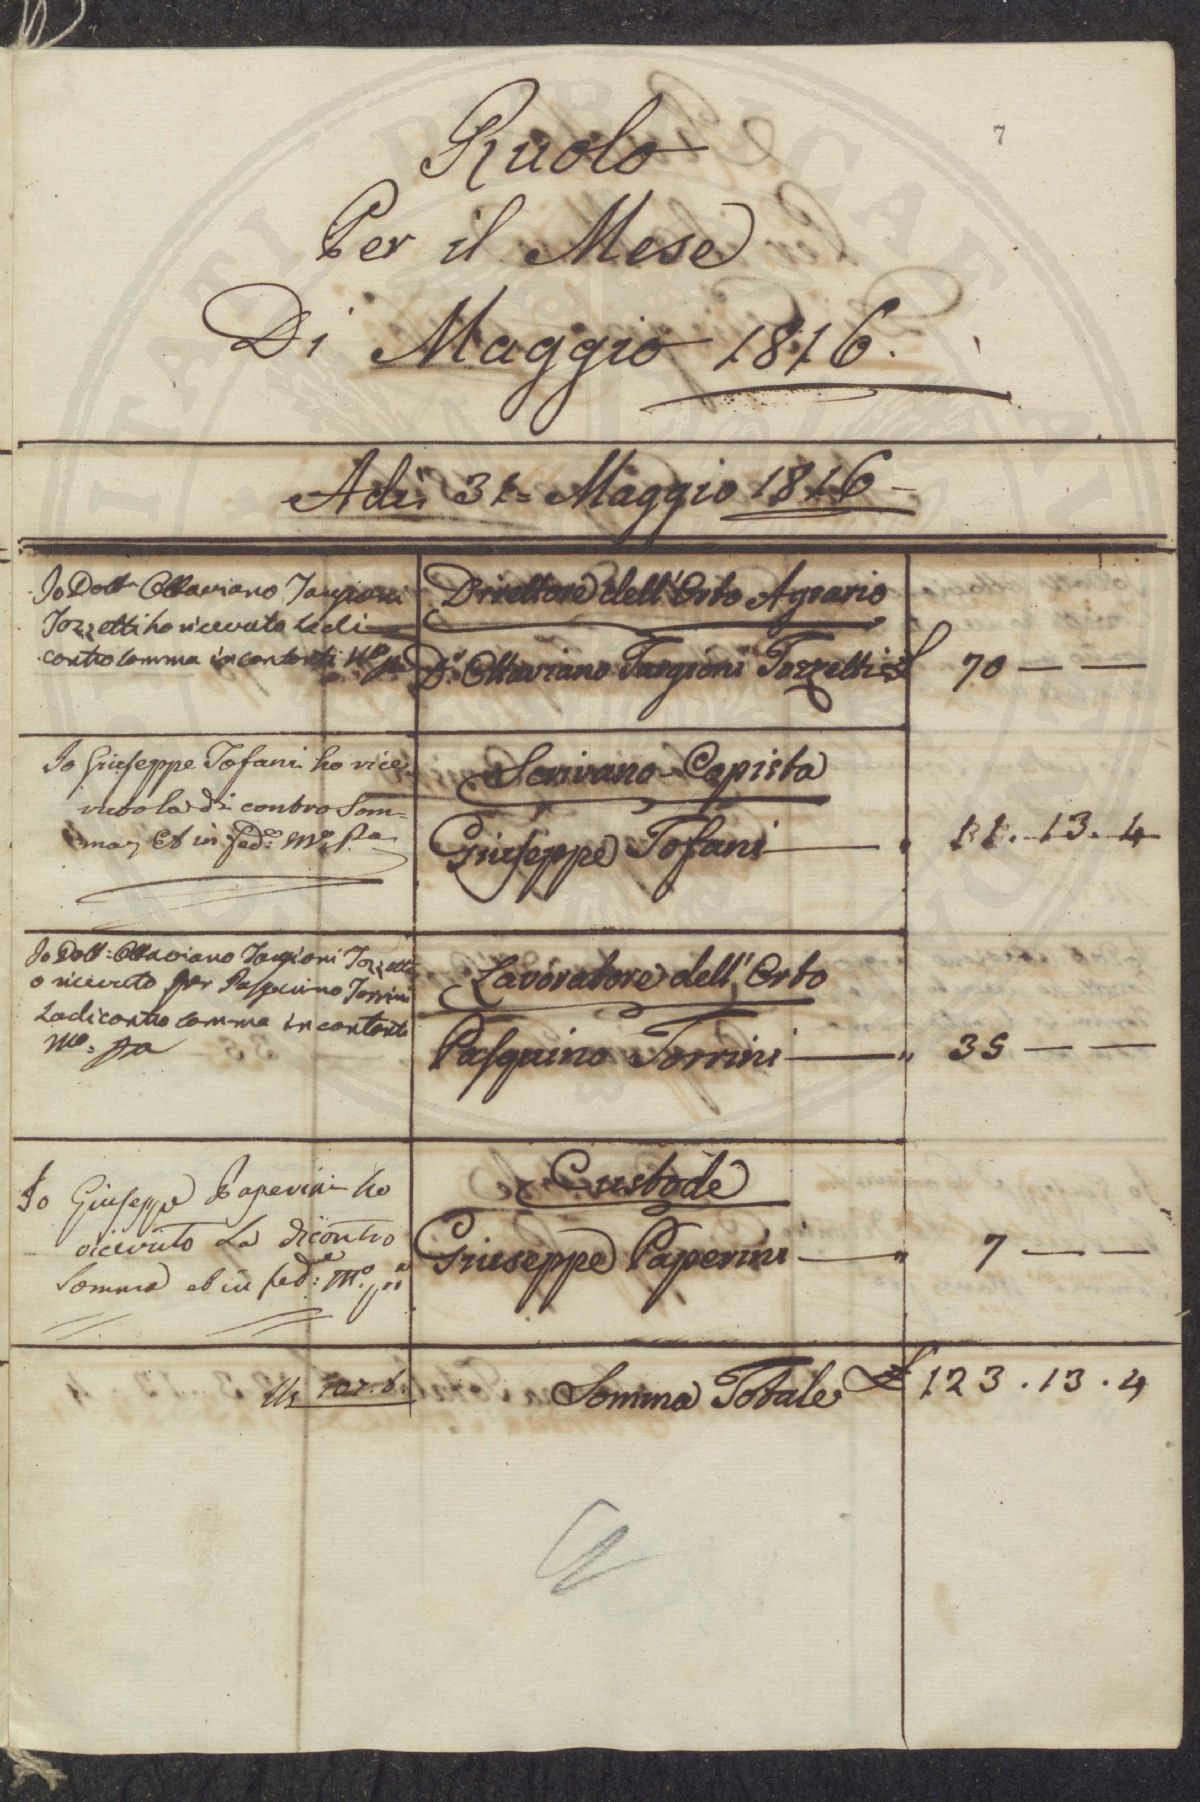 7
Ruolo
Per il Mese
Di Maggio 1816.
Adì 31= Maggio 1816
Io Dott. Ottaviano Targioni
Tozzetti ho ricevuta la di
contro somma in contanti Mo. pa
Direttore dell'Orto Agrario
Dr. Ottaviano Targioni Tozzetti £ 70 — —
Io Giuseppe Tofani ho rice
vuto la di contro Som=
ma, et in fede Mo. Pa
Scrivano Copista
Giuseppe Tofani — " 11. 13. 4
Io Dott: Ottaviano Targioni Tozzetti
o ricevuto per Pasquino Torrini
La di contro somma in contanti
Mo. pa
Lavoratore dell'Orto
Pasquino Torrini — " 35 — —
Io Giuseppe Paperini ho
ricevuto La dicontro
Somma et in fede: Mo. pa
Custode
Giuseppe Paperini — " 7 — —
Somma Totale £ 123. 13. 4